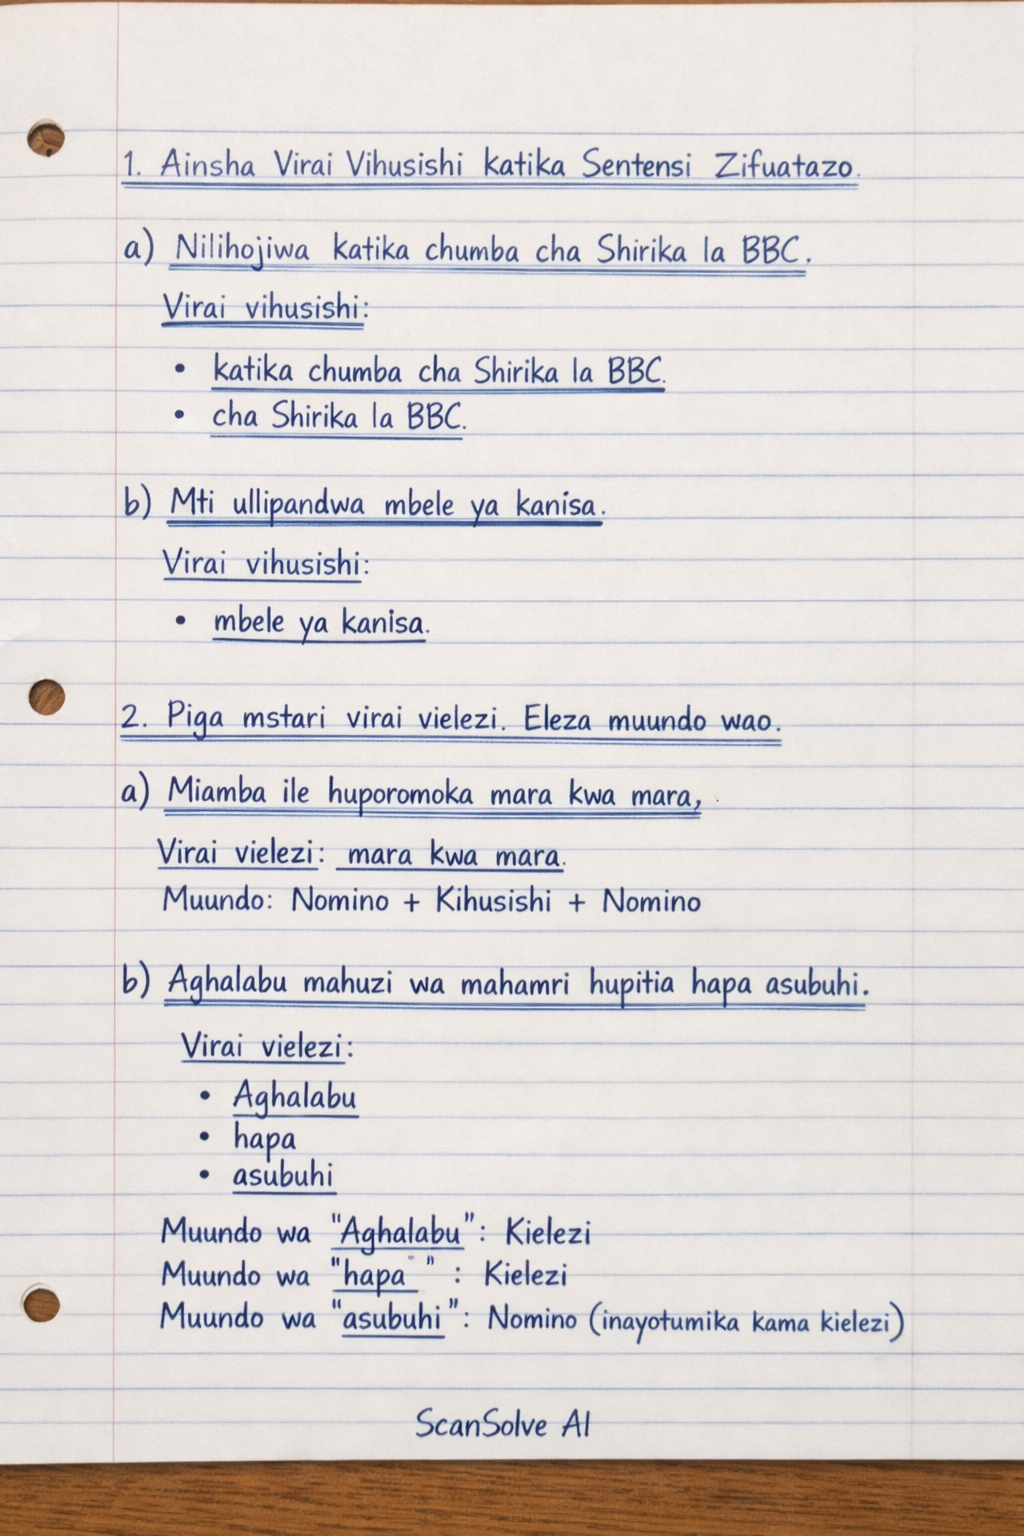 1. Ainsha Virai Vihusishi katika Sentensi Zifuatazo.
a) Nilihojiwa katika chumba cha Shirika la BBC.
Virai vihusishi:
• katika chumba cha Shirika la BBC.
• cha Shirika la BBC.
b) Mti ullipandwa mbele ya kanisa.
Virai vihusishi:
• mbele ya kanisa.
2. Piga mstari virai vielezi. Eleza muundo wao.
a) Miamba ile huporomoka mara kwa mara,
Virai vielezi: mara kwa mara.
Muundo: Nomino + Kihusishi + Nomino
b) Aghalabu mahuzi wa mahamri hupitia hapa asubuhi.
Virai vielezi:
• Aghalabu
• hapa
• asubuhi
Muundo wa "Aghalabu": Kielezi
Muundo wa "hapa" : Kielezi
Muundo wa "asubuhi": Nomino (inayotumika kama kielezi)
ScanSolve AI